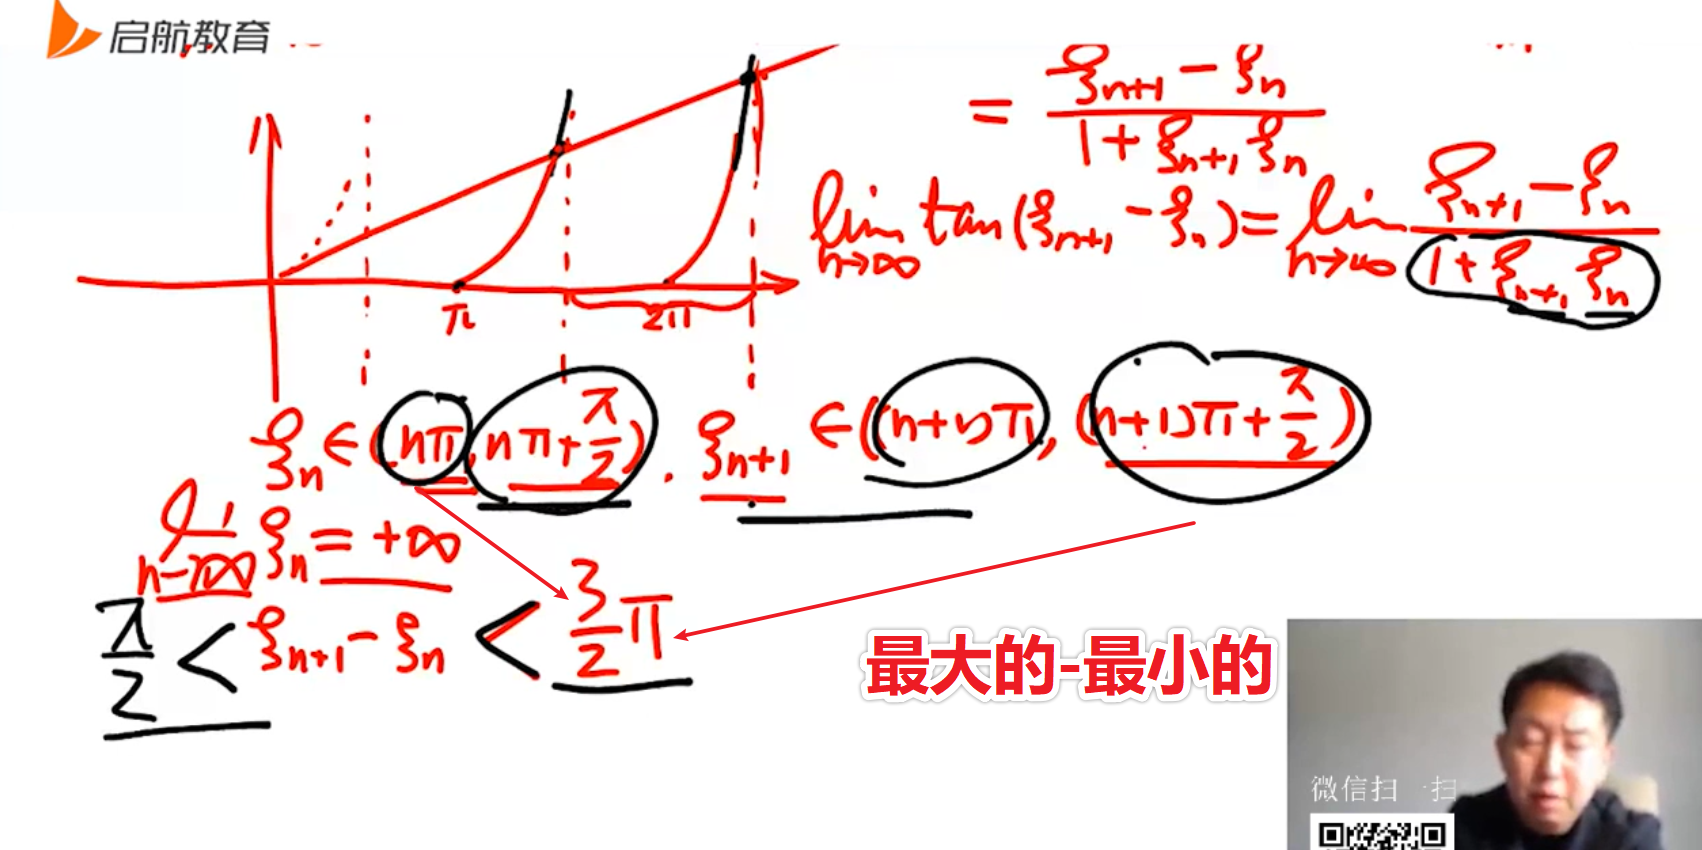 启航教育
= (ξn+1 − ξn) / (1 + ξn+1 ξn)
lim n→∞ tan(ξn+1 − ξn) = lim n→∞ (ξn+1 − ξn) / (1 + ξn+1 ξn)
π 2π
ξn ∈ (nπ, nπ + π/2). ξn+1 ∈ ((n+1)π, (n+1)π + π/2)
lim n→∞ ξn = +∞
π/2 < ξn+1 − ξn < 3/2 π
最大的-最小的
微信扫一扫